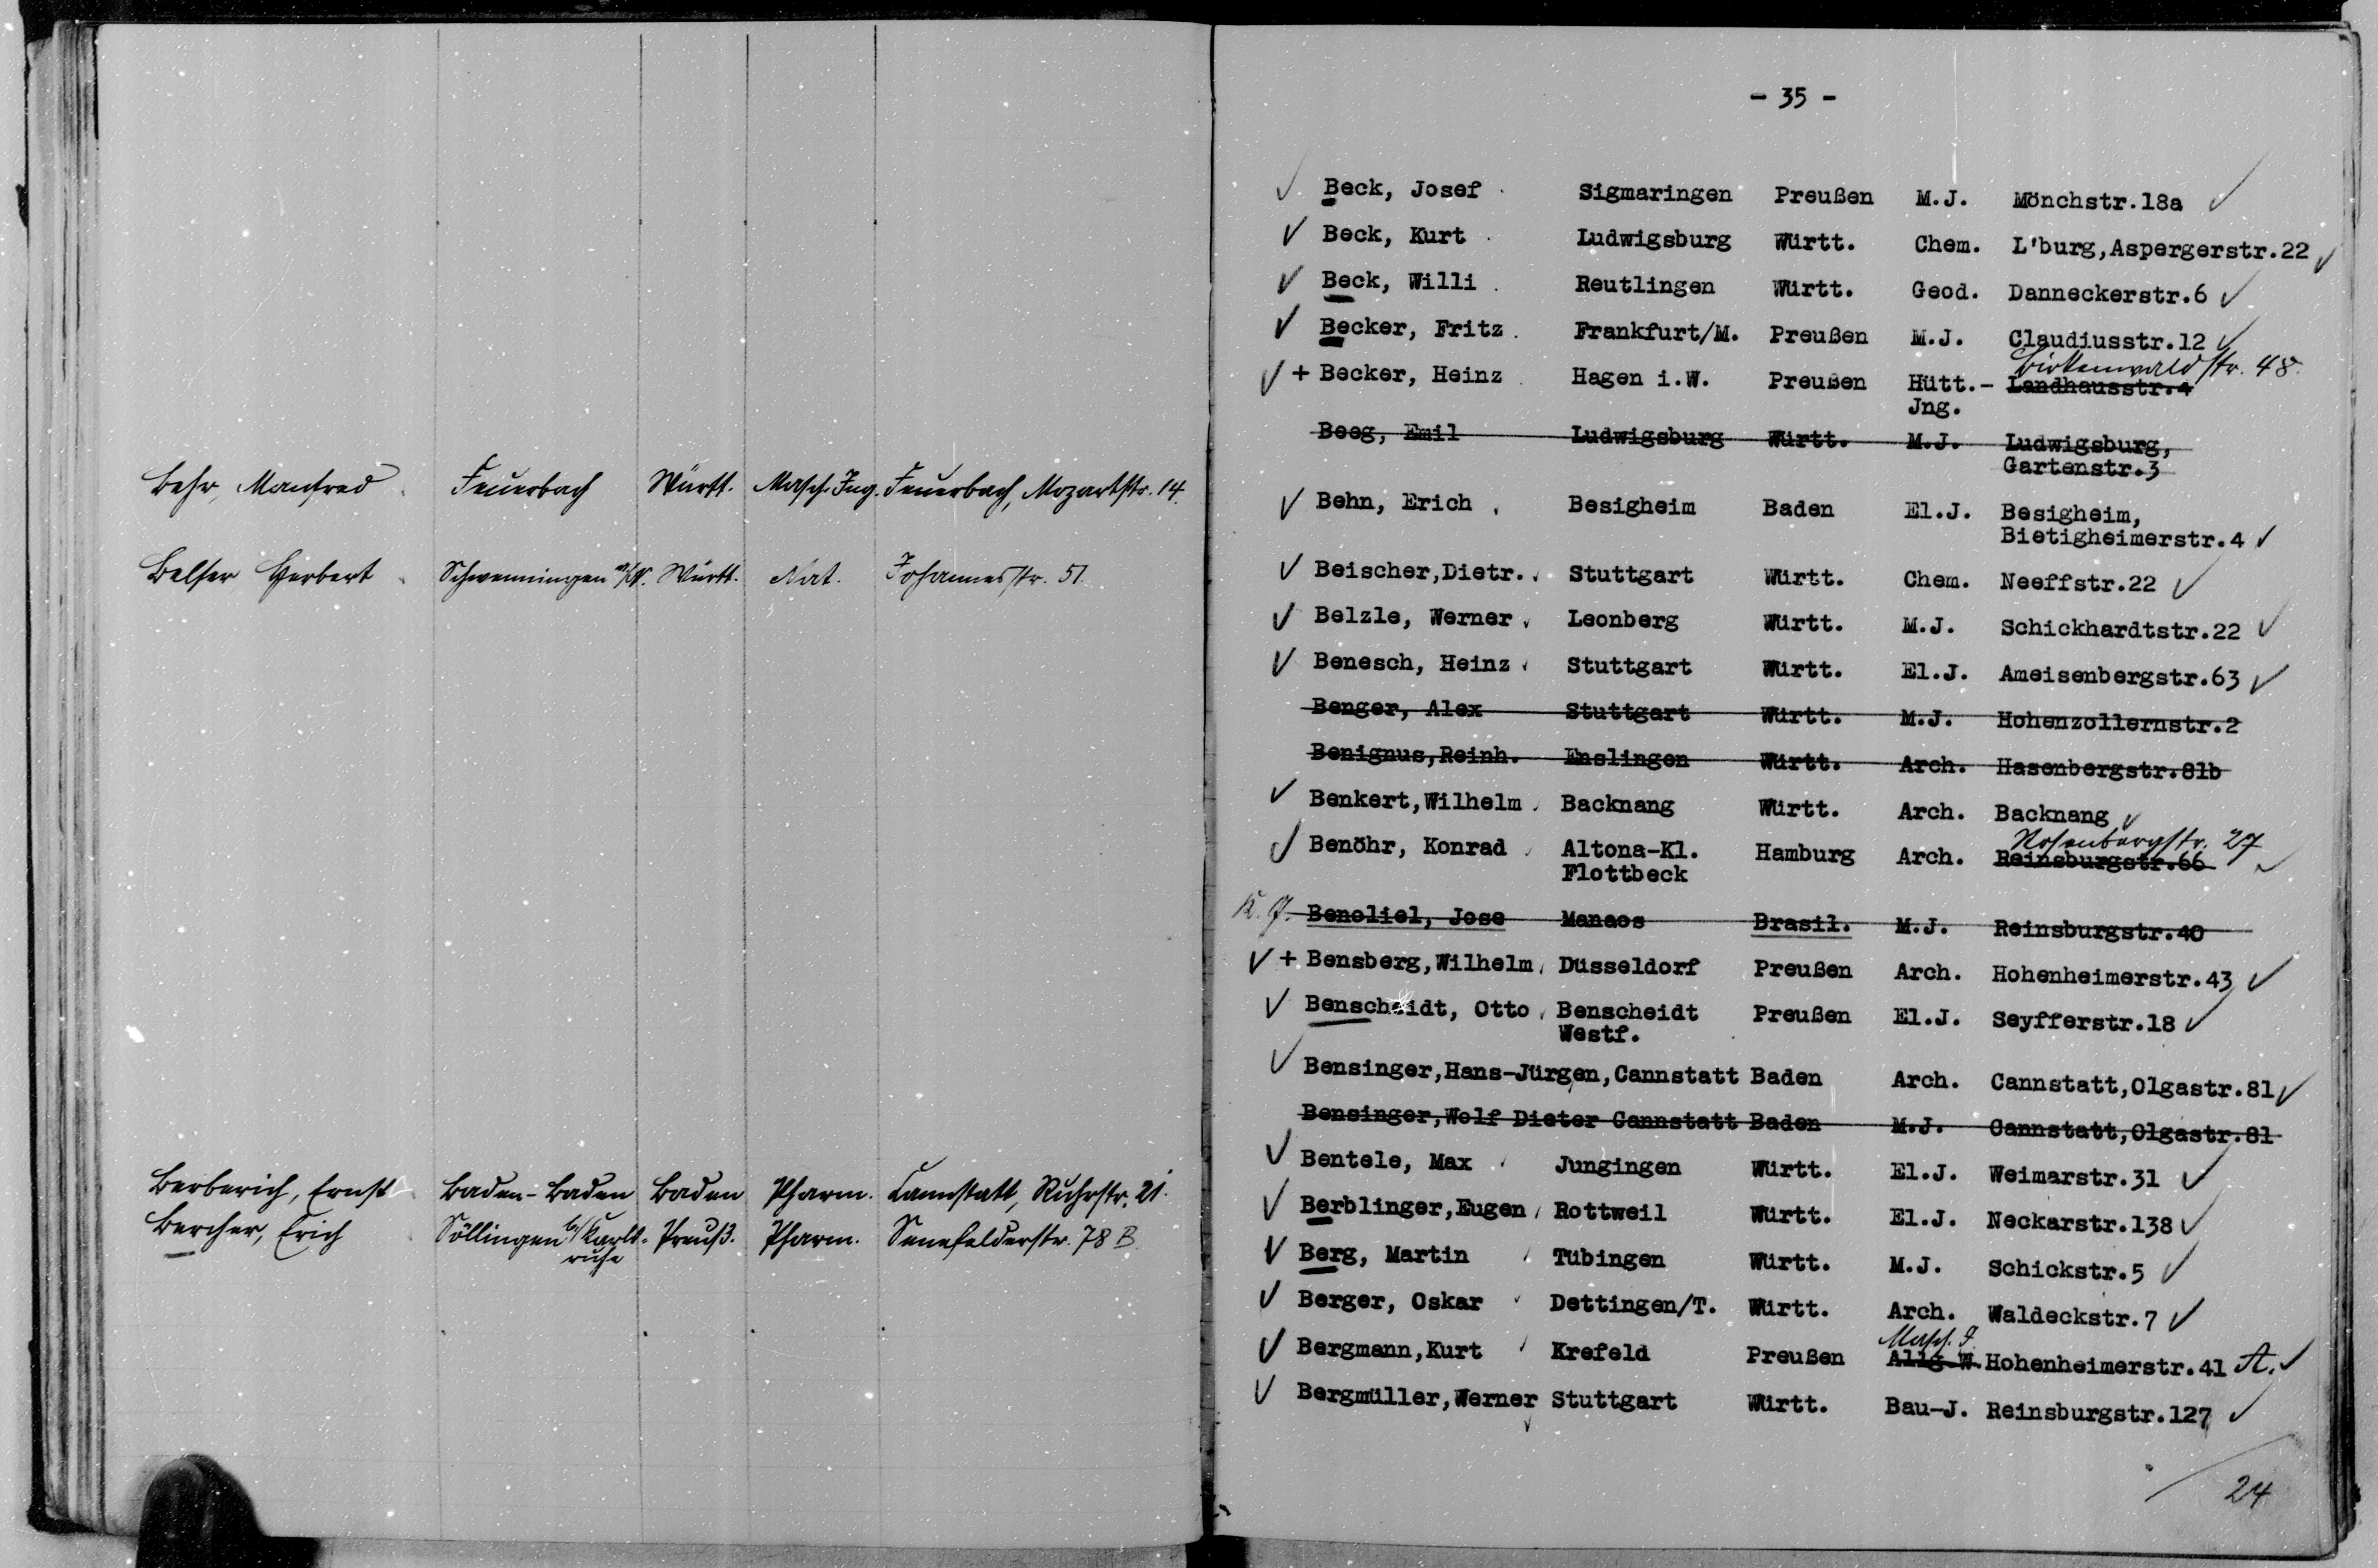 Behr, Manfred Feuerbach Württ. Masch. Ing. Feuerbach, Mozartstr. 14.
Belser Herbert Schwenningen a/N. Württ. Nat. Johannesstr. 51.
Berberich, Ernst Baden-Baden Baden Pharm. Cannstatt, Ruhrstr. 21.
Bercher, Erich Söllingen b/Karls- Preuß. Pharm. Senefelderstr. 78 B
ruhe
- 35 -
Beck, Josef Sigmaringen Preußen M.J. Mönchstr.18a
Beck, Kurt Ludwigsburg Württ. Chem. L'burg,Aspergerstr.22
Beck, Willi Reutlingen Württ. Geod. Danneckerstr.6
Becker, Fritz Frankfurt/M. Preußen M.J. Claudiusstr.12
Birkenwaldstr. 48.
+ Becker, Heinz Hagen i.W. Preußen Hütt.- Landhausstr.4
Jng.
Beeg, Emil Ludwigsburg Württ. M.J. Ludwigsburg,
Gartenstr.3
Behn, Erich Besigheim Baden El.J. Besigheim,
Bietigheimerstr.4
Beischer,Dietr. Stuttgart Württ. Chem. Neeffstr.22
Belzle, Werner Leonberg Württ. M.J. Schickhardtstr.22
Benesch, Heinz Stuttgart Württ. El.J. Ameisenbergstr.63
Benger, Alex Stuttgart Württ. M.J. Hohenzollernstr.2
Benignus,Reinh. Enslingen Württ. Arch. Hasenbergstr.81b
Benkert,Wilhelm Backnang Württ. Arch. Backnang
Rosenbergstr. 27
Benöhr, Konrad Altona-Kl. Hamburg Arch. Reinsburgstr.66
Flottbeck
Benoliel, Jose Manaos Brasil. M.J. Reinsburgstr.40
+ Bensberg,Wilhelm Düsseldorf Preußen Arch. Hohenheimerstr.43
Benscheidt, Otto Benscheidt Preußen El.J. Seyfferstr.18
Westf.
Bensinger,Hans-Jürgen,Cannstatt Baden Arch. Cannstatt,Olgastr.81
Bensinger,Wolf Dieter Cannstatt Baden M.J. Cannstatt,Olgastr.81
Bentele, Max Jungingen Württ. El.J. Weimarstr.31
Berblinger,Eugen Rottweil Württ. El.J. Neckarstr.138
Berg, Martin Tübingen Württ. M.J. Schickstr.5
Berger, Oskar Dettingen/T. Württ. Arch. Waldeckstr.7
Masch. J.
Bergmann,Kurt Krefeld Preußen Allg.W. Hohenheimerstr.41 A.
Bergmüller,Werner Stuttgart Württ. Bau-J. Reinsburgstr.127
24